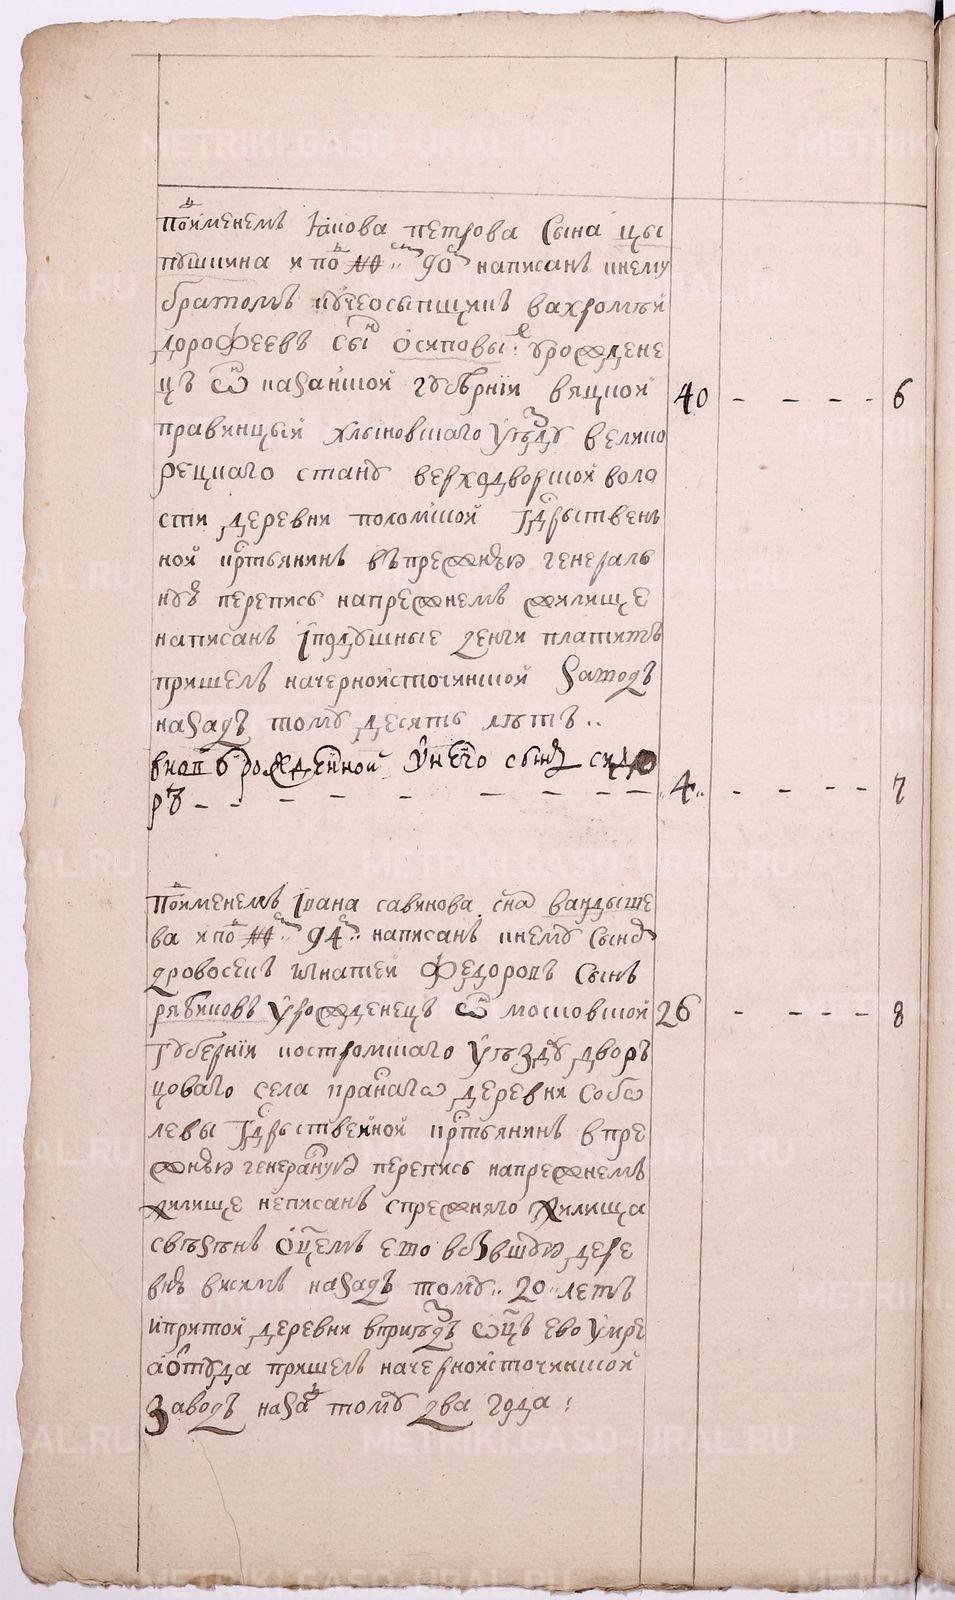 Подименемъ Iакова петрова сына цы
пушкина и по № 90 написанъ кнему
братомъ кучеосыпщикъ вахромѣи
дорофеевъ сынъ осиповы: урожене
цъ от казанской губѣрніи вяцкой
правинцыи хлыновскаго уѣзду велико
рецкаго стану верходворской воло
сти деревни поломской Гдрьствен
ной крстьянинъ въпрежнею генераль
ную перепись напрежнемъ жилище
написанъ Iподушные денги платитъ
пришелъ начерноисточинской заводъ
назадъ тому десять лѣтъ..
внов рожденной унего сынъ сидо
ръ - - - - - - - „4„ - - - - 7
40 - - - - 6
Подименемъ Iвана савинова сна вандыше
ва и по № 94 написанъ кнему сыномъ
дровосекъ игнатеи Федоровъ сынъ
рябиковъ Уроженецъ от московской 26 - - - - 8
Губерніи костромскаго Уѣзду дворъ
цоваго села деревни собо
левы Гдрьственной крстьянинъ впре
жнею генералную перепись напрежнемъ
жилище неписанъ спрежняго жилища
свѣзѣнъ отцемъ ево дере
внѣ назадъ тому.. 20 летъ
ипритой деревни отцъ ево умре
аоттуда пришелъ начерноисточинской
Заводъ назадъ тому два года:
METRIKI.GASO-URAL.RU